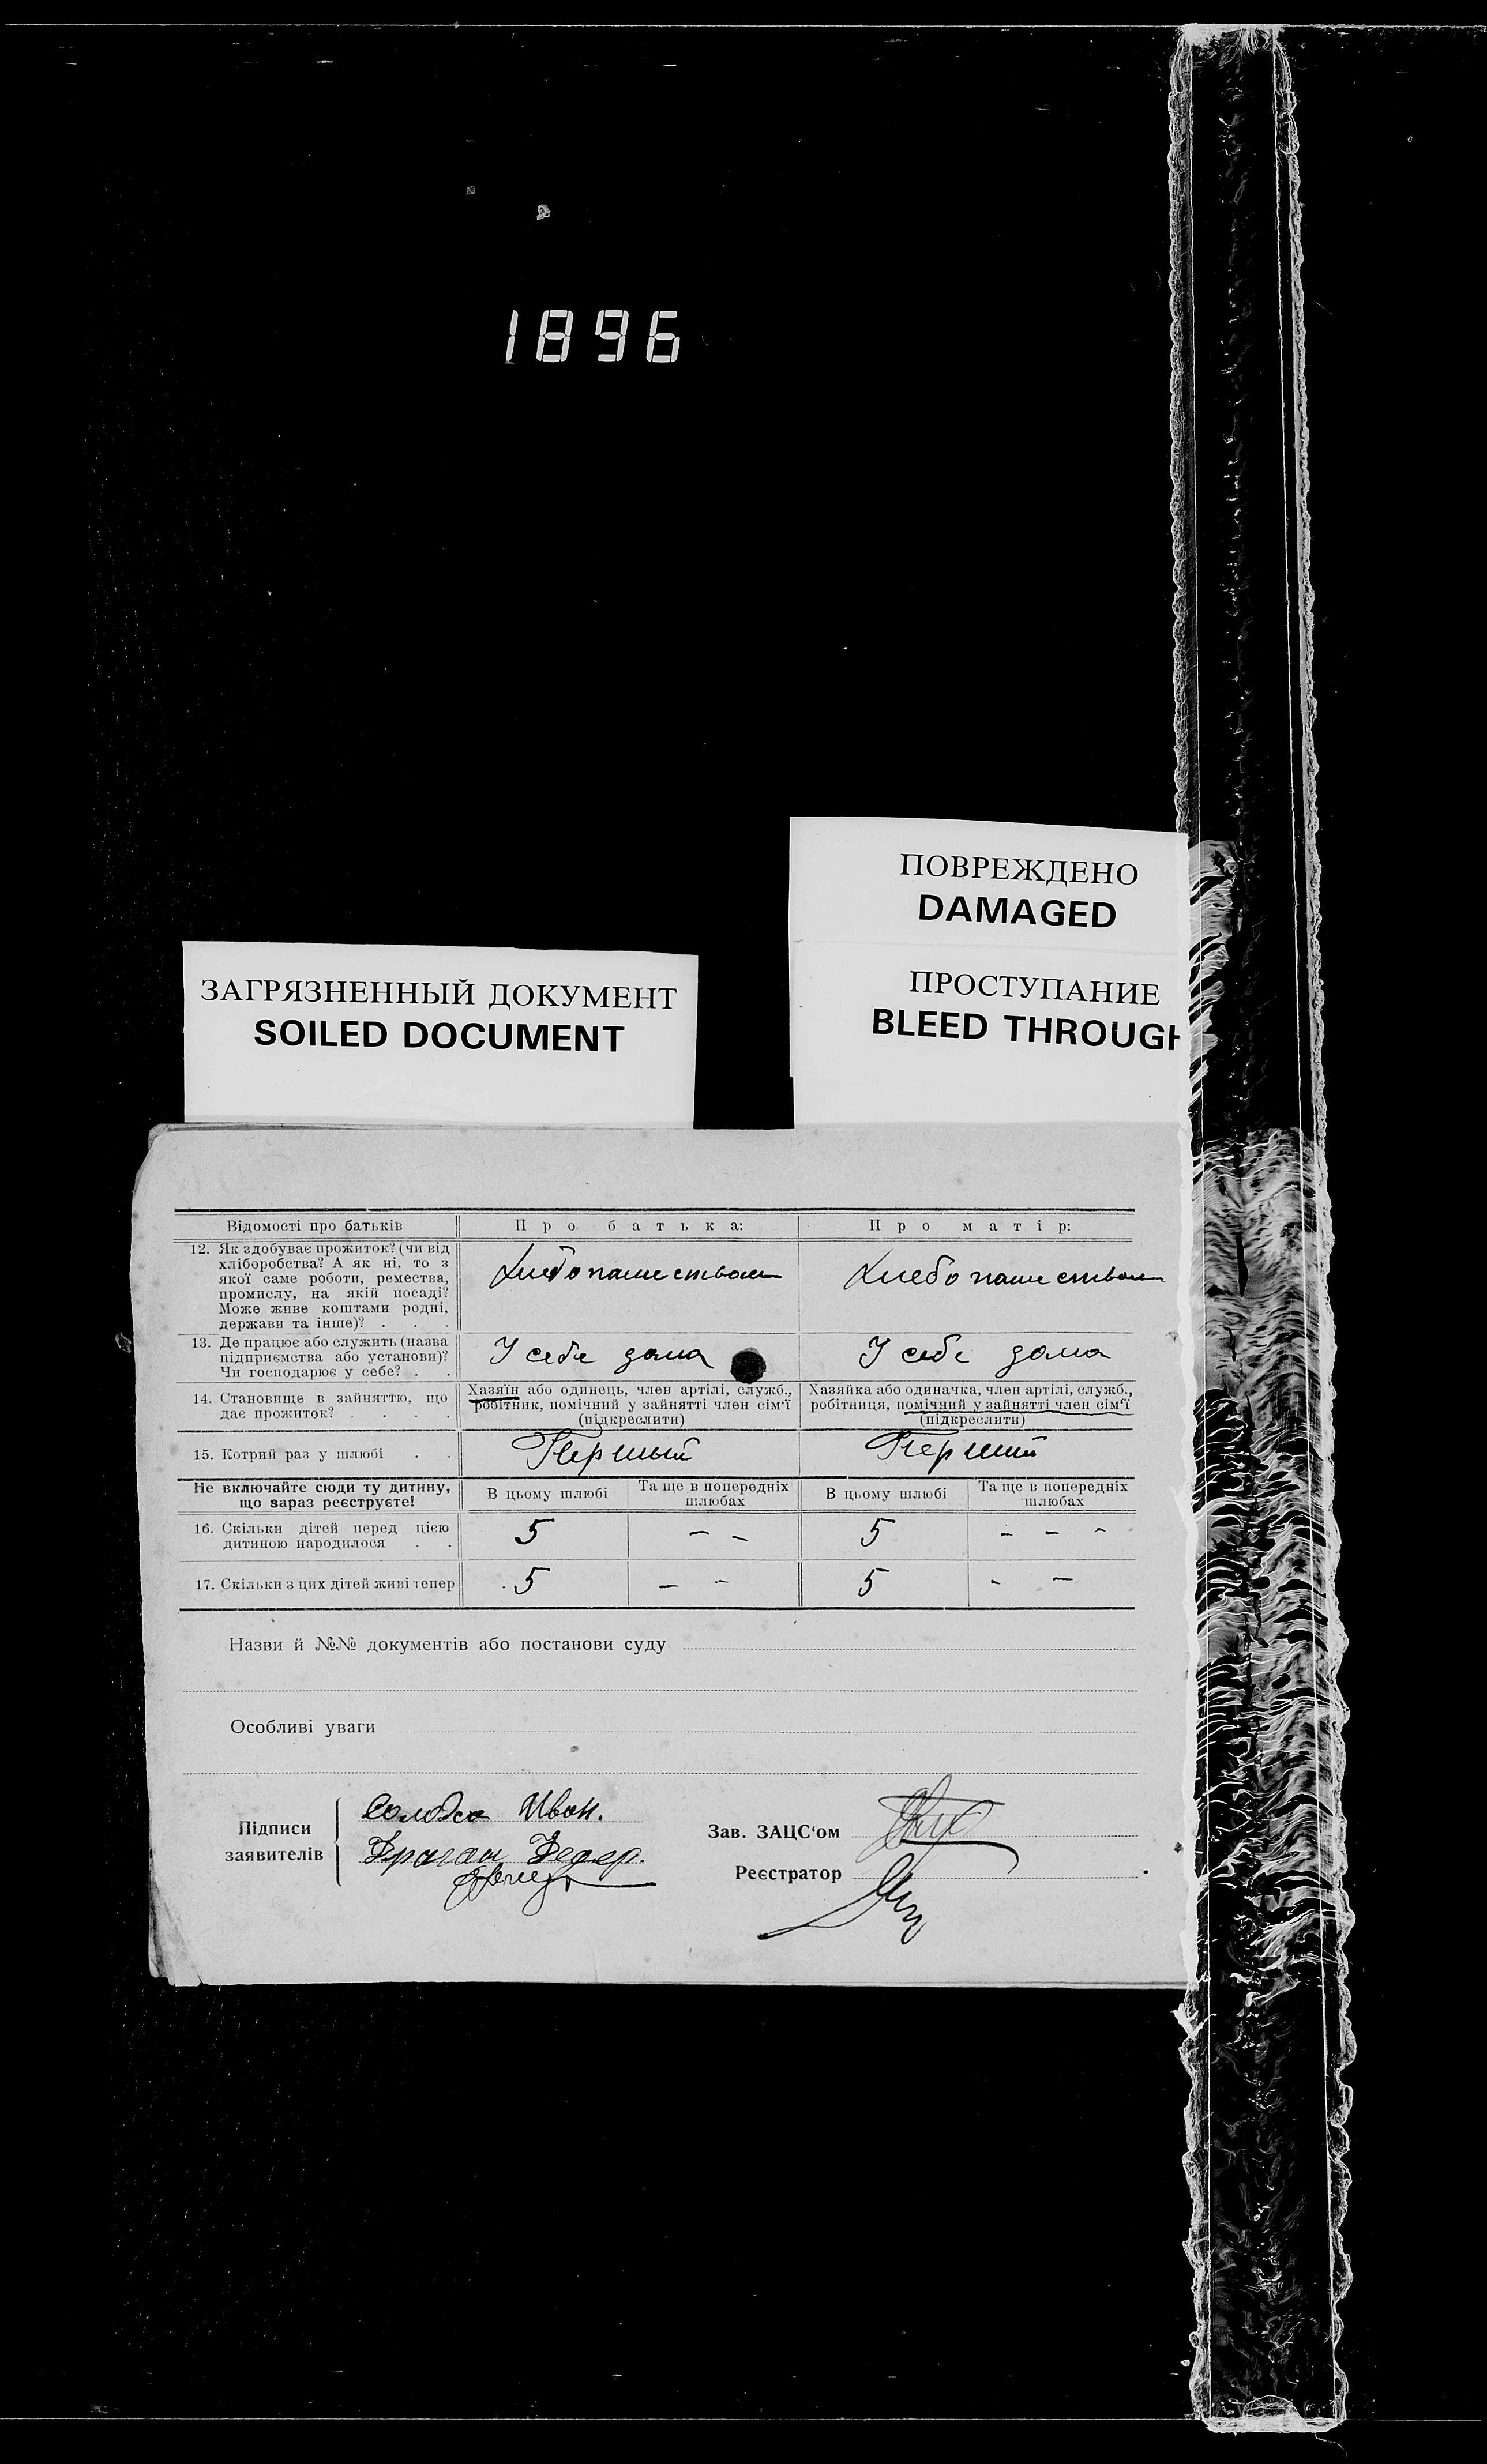 1896
ПОВРЕЖДЕНО
DAMAGED
ПРОСТУПАНИЕ
BLEED THROUGH
ЗАГРЯЗНЕННЫЙ ДОКУМЕНТ
SOILED DOCUMENT
Відомості про батьків
Про батька:
Про матір:
12. Як здобуває прожиток? (чи від
хліборобства? А як ні, то з
якої саме роботи, ремества,
промислу, на якій посаді?
Може живе коштами родні,
держави та інше)? . . .
Хлебопашеством
Хлебопашеством
13. Де працює або служить (назва
підприємства або установи)?
Чи господарює у себе? . .
У себе дома
У себе дома
14. Становище в зайняттю, що
дає прожиток? . . . .
Хазяїн або одинець, член артілі, служб.,
робітник, помічний у зайнятті член сім'ї
(підкреслити)
Хазяйка або одиначка, член артілі, служб.,
робітниця, помічний у зайнятті член сім'ї
(підкреслити)
15. Котрий раз у шлюбі . .
Першый
Перший
Не включайте сюди ту дитину,
що зараз реєструєте!
В цьому шлюбі
Та ще в попередніх
шлюбах
В цьому шлюбі
Та ще в попередніх
шлюбах
16. Скільки дітей перед цією
дитиною народилося . .
5
– –
5
– – –
17. Скільки з цих дітей живі тепер
5
– –
5
– –
Назви й №№ документів або постанови суду
Особливі уваги
Підписи
заявителів
Иван.
Драган Федер.
Зав. ЗАЦС'ом
Реєстратор